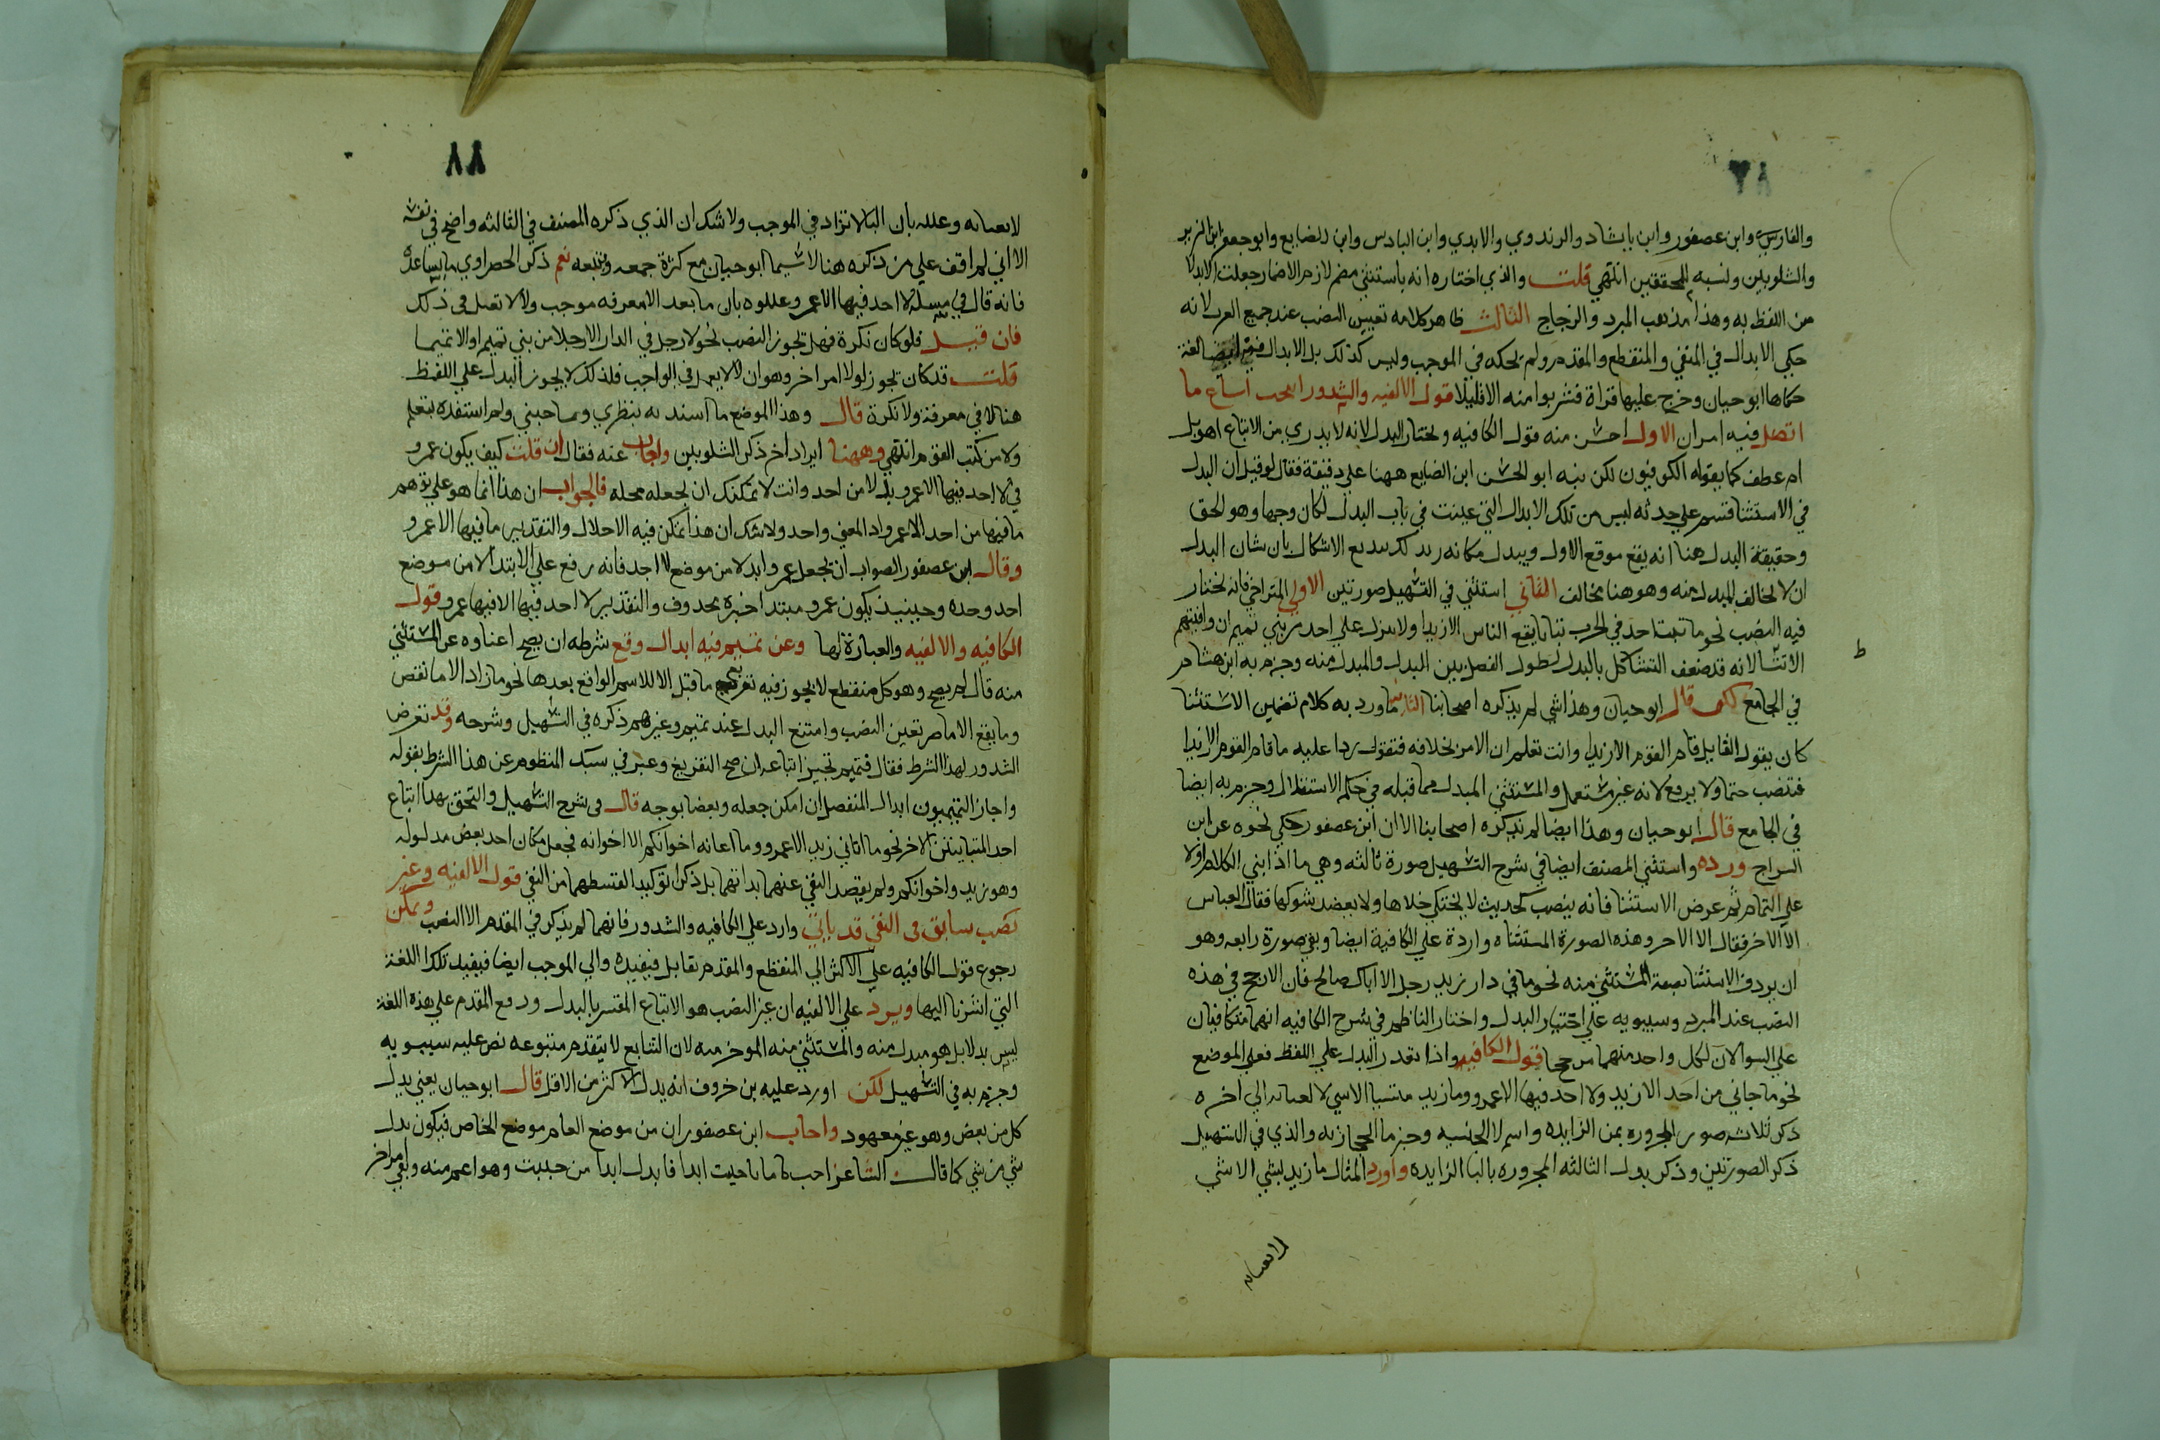 ٨٧
والفارسي وابن عصفور وابن بابشاد والرندي والابدي وابن الباذش وابن الضايع وابو جعفر ابن الزبير
والشلوبين ونسبه للمحققين انتهي قلت والذي اختاره انه باستثني مضم لازم الاضمار جعلت الا بدلا
من اللفظ به وهذا مذهب المبرد والزجاج الثالث ظاهر كلامه تعيين النصب عند جميع العرب لانه
حكي الابدال في المنفي والمنقطع والمقدم ولم يحكه في الموجب وليس كذلك بل الابدال فيه ايضا لغة
حكاها ابو حيان وخرج عليها قراة فشربوا منه الا قليلا قول الالفيه والشدور انتخب اتباع ما
اتصل فيه امران الاول احسن منه قول الكافيه ويختار البدل لانه لا يدري من الاتباع اهو بدل
ام عطف كما يقوله الكوفيون لكن نبه ابو الحسن ابن الضايع ههنا علي دقيقة فقال لو قيل ان البدل
في الاستثنا قسم علي حدته ليس من تلك الابدال التي عينت في باب البدل لكان وجها وهو الحق
وحقيقة البدل هنا انه يقع موقع الاول ويبدل مكانه الاشكال بان شان البدل
ان لا يخالف المبدل منه وهو هنا مخالف الثاني استثني في التسهيل صورتين الاولي المتراخي فانه يختار
فيه النصب نحو ما ثبت احد في الحرب ثباتا يقع الناس الا زيدا ولا تنزل علي احد من بني تميم ان وافيتهم
الا قيسا لانه قد ضعف التشاكل بالبدل لطول الفصل بين البدل والمبدل منه وجزم به ابن هشام
في الجامع لكن قال ابو حيان وهذا شي لم يذكره اصحابنا الثاني ما ورد به كلام تضمن الاستثنا
كان يقول القايل قام القوم الا زيدا وانت تعلم ان الامر بخلافه فتقول ردا عليه ما قام القوم الا زيدا
فتنصب حتما ولا يرفع لانه غير مستعمل والمستثني المبدل مما قبله في حكم الاستقلال وجزم به ايضا
في الجامع قال ابو حيان وهذا ايضا لم يذكره اصحابنا الا ان ابن عصفور حكي نحوه عن ابن
السراج ورده واستثني المصنف ايضا في شرح التسهيل صورة ثالثه وهي ما اذا بني الكلام اولا
علي التمام ثم عرض الاستثنا فانه ينصب كحديث لا يختلي خلاها ولا يعضد شوكها فقال العباس
الا الاذخر فقال الا الاذخر وهذه الصورة المستثناه واردة علي الكافية ايضا وبقي صورة رابعه وهو
ان يردف الاستثنا بصفة المستثني منه نحو ما في دار زيد رجل الا اباك صالح فان الارجح في هذه
النصب عند المبرد وسيبويه علي اختيار البدل واختار الناظم في شرح الكافيه انهما متكافيان
علي السوا لان لكل واحد منهما مرجحا قول الكافيه واذا تعذر البدل علي اللفظ فعلي الموضع
نحو ما جاني من احد الا زيد ولا احد فيها الا عمرو وما زيد شيا الا شي لا يعبا به الي اخره
ذكر ثلاث صور المجروره بمن الزايده واسم لا الجنسيه وخبر ما الحجازيه والذي في التسهيل
ذكر الصورتين وذكر بدل الثالثه المجروره بالبا الزايده واورد المثال ما زيد بشي الا شي
لا يعبا به
ط
٨٨
لا يعبا به وعلله بان البا لا تزاد في الموجب ولا شك ان الذي ذكره المصنف في الثالثه واضح في نفسه
الا اني لم اقف علي من ذكره هنا لا سيما ابو حيان مع كثرة جمعه وتتبعه نعم ذكر الحضراوي ما يساعده
فانه قال في مسلة لا احد فيها الا عمرو وعللوه بان ما بعد الا معرفه موجب ولا لا تعمل في ذلك
فان قيل فلو كان نكرة فهل تجوز النصب نحو لا رجل في الدار الا رجلا من بني تميم او الا تميما
قلت قد كان تجوز لولا امر اخر وهو ان لا لا يعمل في الواجب فلذلك لا يجوز البدل علي اللفظ
هنا لا في معرفة ولا نكرة قال وهذا الموضع ما استد به بنظري وصاحبني ولم استفده بتعلم
ولا من كتب القوم انتهي وههنا ايراد اخر ذكره الشلوبين واجاب عنه فقال ان قلت كيف يكون عمرو
في لا احد فيها الا عمرو بدلا من احد وانت لا يمكنك ان تجعله محله فالجواب ان هذا انما هو علي توهم
ما فيها من احد الا عمرو اذ المعني واحد ولا شك ان هذا يمكن فيه الاحلال والتقدير ما فيها الا عمرو
وقال ابن عصفور الصواب ان يجعل عمرو ابدلا من موضع لا احد فانه رفع علي الابتدا لا من موضع
احد وحده وحينيذ يكون عمرو مبتدا خبره محذوف والتقدير لا احد فيها الا فيها عمرو وقول
الكافيه والالفيه والعبارة لها وعن تميم فيه ابدال وقع شرطه ان يصح اغناوه عن المستثني
منه قال لم يصح وهو كل منقطع لا يجوز فيه تفريغ ما قبل الا للاسم الواقع بعدها نحو ما زاد الا ما نقص
وما يقع الا ما ضر تعين النصب وامتنع البدل عند تميم وغيرهم ذكره في التسهيل وشرحه وقد تعرض
الشدور لهذا الشرط فقال فتميم تجيز اتباعه ان صح التفريغ وعبر في سبك المنظوم عن هذا الشرط بقوله
واجاز التميميون ابدال المنفصل ان امكن جعله وبعضا بوجه قال في شرح التسهيل والتحق بهذا اتباع
احد المتباينين الاخر نحو ما اتاني زيد الا عمرو وما اعانه اخوانكم الا اخوانه فجعل مكان احد بعض مدلوله
وهو زيد واخوانكم ولم يقصد النفي عنهما بداتهما بل ذكرا توكيدا لقسطهما من النفي قول الالفيه وغير
نصب سابق في النفي قد ياتي وارد علي الكافيه والشدور فانهما لم يذكر في المقدم الا النصب ويمكن
رجوع قول الكافيه علي الاكثر الي المنقطع والمقدم تقابل فيفيده والي الموجب ايضا فيفيد تلك اللغة
التي اشرنا اليها ويرد علي الالفيه ان غير النصب هو الاتباع المفسر بالبدل ورفع المقدم علي هذه اللغة
ليس بدلا بل هو مبدل منه والمستثني منه الموخر منه لان التابع لا يتقدم متبوعه نص عليه سيبويه
وجزم به في التسهيل لكن اورد عليه بن خروف انه بدل الاكثر من الاقل قال ابو حيان يعني بدل
كل من بعض وهو غير معهود واجاب ابن عصفور ان من موضع العام موضع الخاص فيكون بدل
شي من شي كما قال الشاعر احب ما حييت ابدا فابدل ابدا من حييت وهو اعم منه وبقي امر اخر